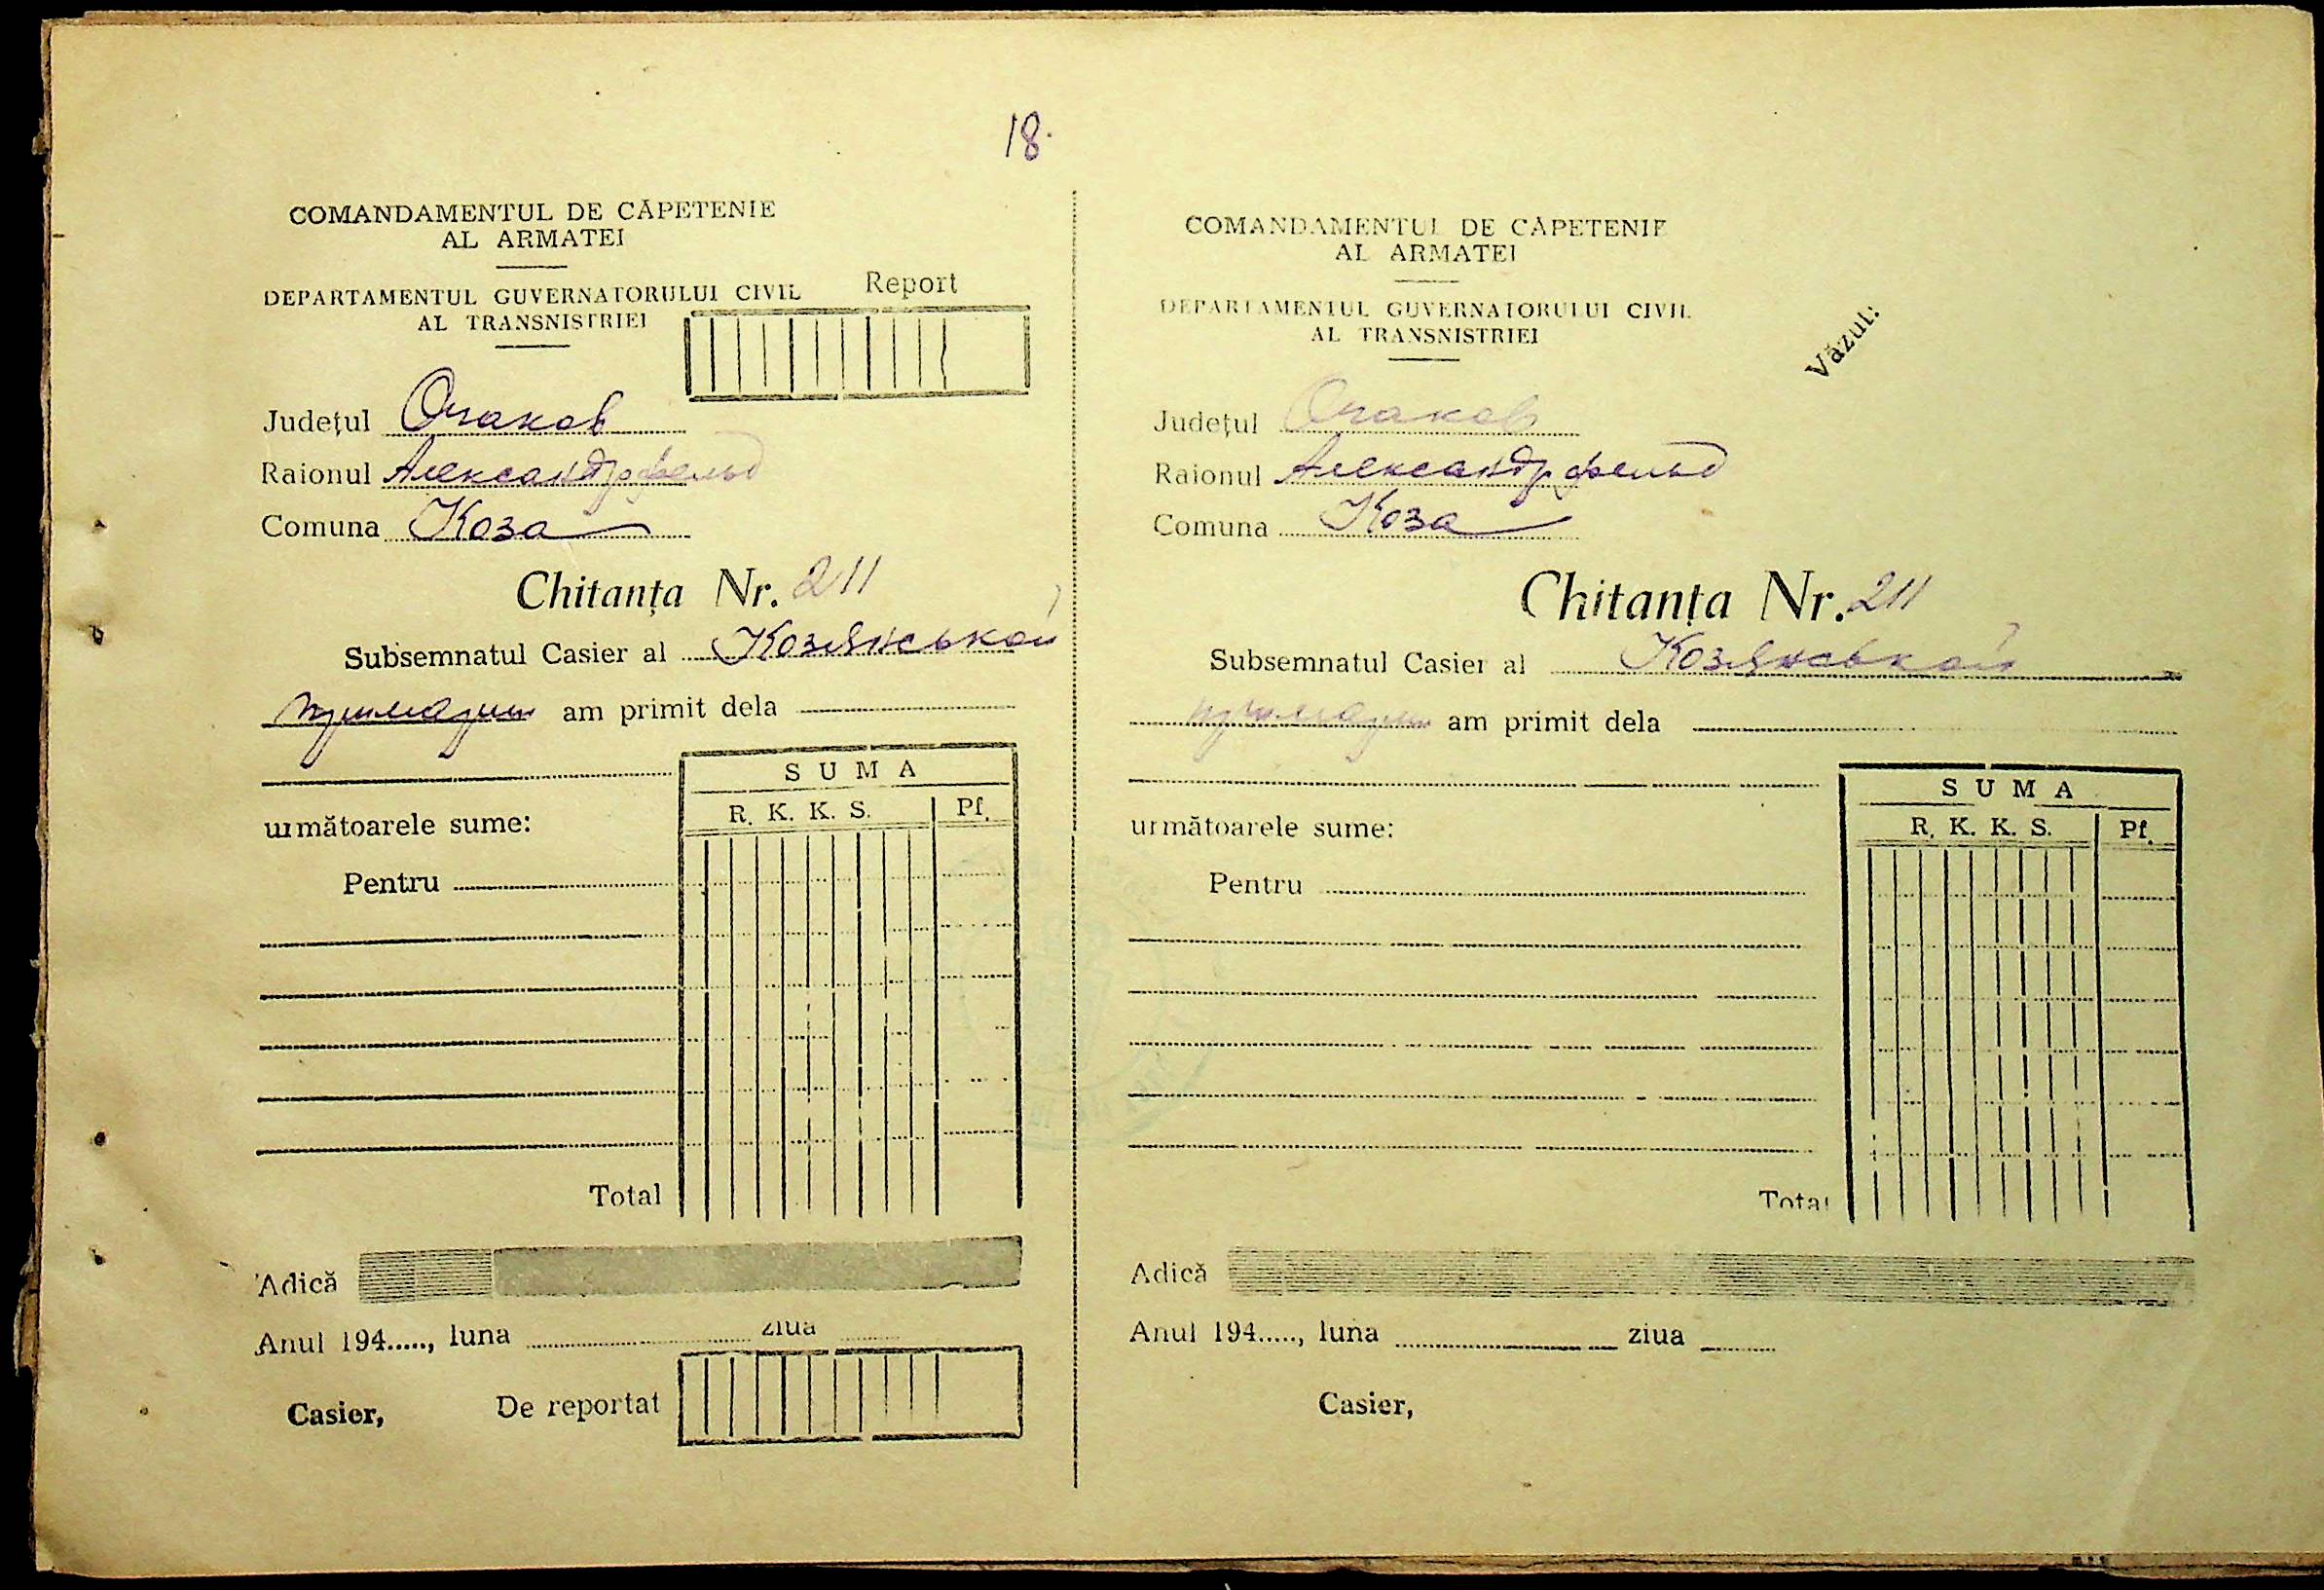 18.
COMANDAMENTUL DE CĂPETENIE
AL ARMATEI
DEPARTAMENTUL GUVERNATORULUI CIVIL
AL TRANSNISTRIEI
Report
Județul Очаков
Raionul Александрфельд
Comuna Коза
Chitanța Nr. 211
Subsemnatul Casier al Козянської
примарии am primit dela
SUMA
R. K. K. S. Pf.
următoarele sume:
Pentru
Total
Adică
Anul 194....., luna ziua
Casier, De reportat
COMANDAMENTUL DE CĂPETENIE
AL ARMATEI
DEPARTAMENTUL GUVERNATORULUI CIVIL
AL TRANSNISTRIEI
Văzut:
Județul Очаков
Raionul Александрфельд
Comuna Коза
Chitanța Nr. 211
Subsemnatul Casier al Козянської
примарии am primit dela
SUMA
R. K. K. S. Pf.
următoarele sume:
Pentru
Total
Adică
Anul 194....., luna ziua
Casier,